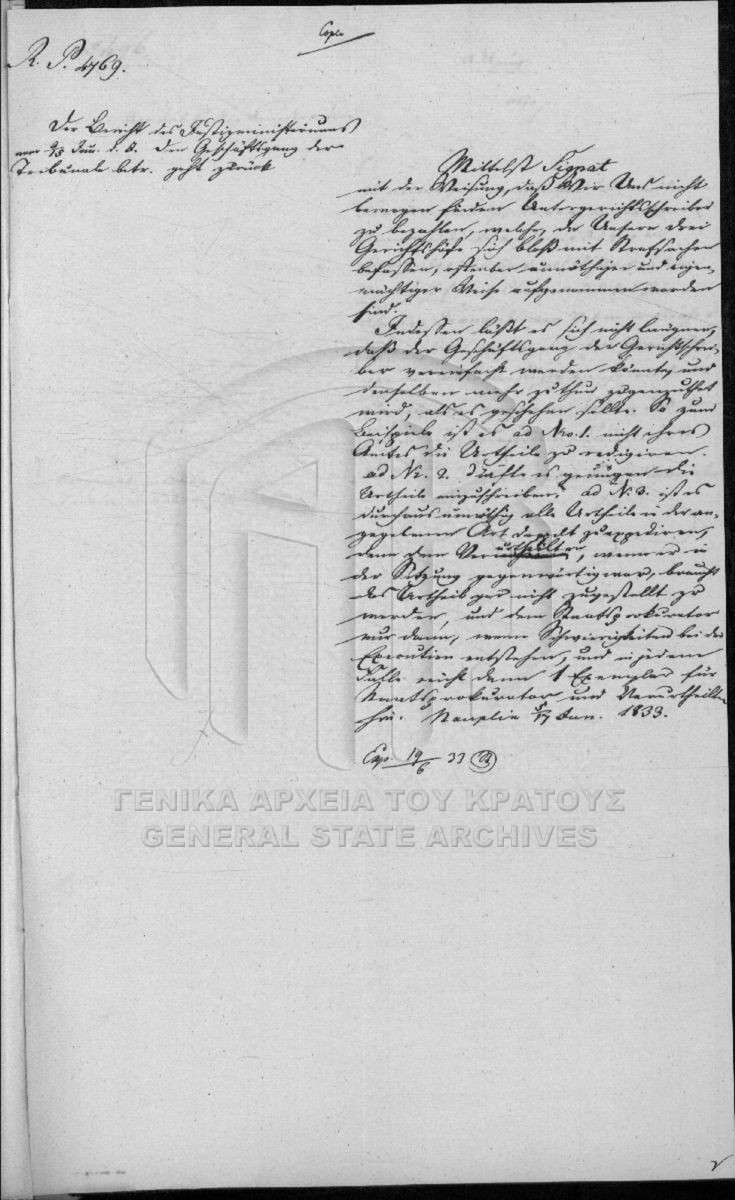 Copia
R. P. 4769.
Der Bericht des Justizministeriums
vom Jun. d. J. den Geschäftsgang der
Tribunale betr. geht zurück
Mittelst Signat
mit der Weisung, daß Wir Uns nicht
bewogen finden Untergerichtsschreiber
zu bezahlen, welche, da Unsere drei
Gerichtshöfe sich bloß mit Strafsachen
befassen, offenbar unnöthiger und eigen-
mächtiger Weise aufgenommen worden
sind.
Indessen läßt es sich nicht läugnen,
daß der Geschäftsgang der Gerichtsschrei-
ber vereinfacht werden könnte, und
denselben mehr zu thun zugemuthet
wird, als es geschehen sollte. So zum
Beispiele ist es ad Nro. 1. nicht ihres
Amtes die Urtheile zu redigiren.
ad Nr. 2. dürfte es genügen die
Urtheile einzuschreiben, ad N. 3. ist es
durchaus unnöthig alle Urtheile in der an-
gegebenen Art zu expediren,
denn dem Verurtheilten, wenn er in
der Sitzung gegenwärtig war, braucht
das Urtheil gar nicht zugestellt zu
werden, und dem Staatsprokurator
nur dann, wenn Schwierigkeiten bei der
Execution entstehen, und in jedem
Falle reicht dann 1 Exemplar für
Staatsprokurator und Verurtheilten
hin. Nauplia 5/17 Jun. 1833.
Exp. 19/6 33
ΓΕΝΙΚΑ ΑΡΧΕΙΑ ΤΟΥ ΚΡΑΤΟΥΣ
GENERAL STATE ARCHIVES